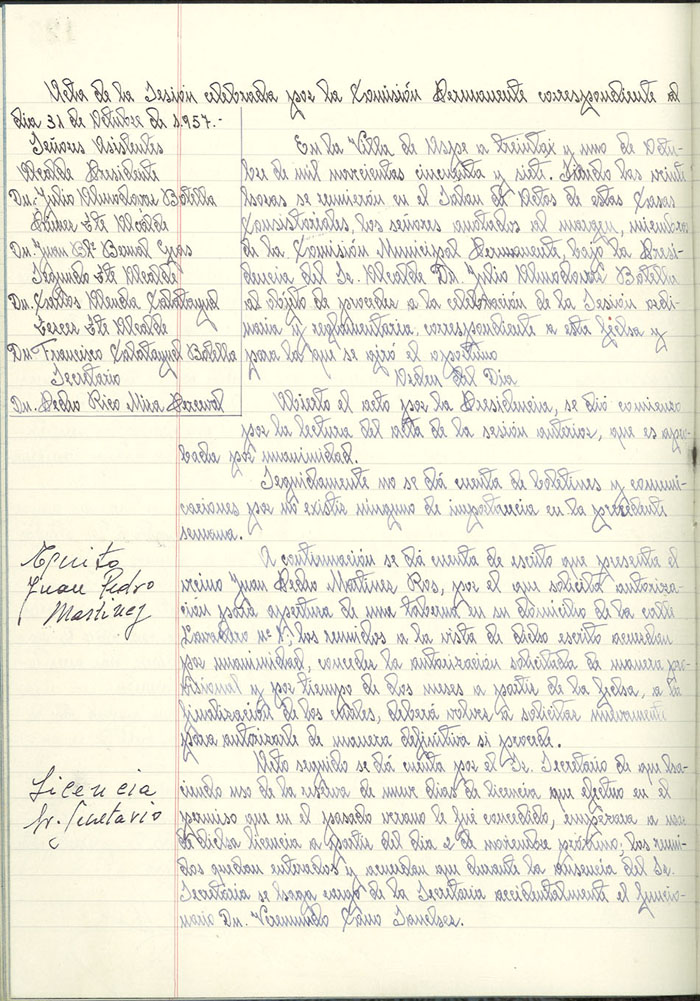 Acta de la Sesión celebrada por la Comisión Permanente correspondiente al
día 31 de Octubre de 1.957.-
Señores Asistentes
Alcalde Presidente
Dn. Julio Almodovar Botella
Primer Tte Alcalde
Dn. Juan Bta Bonal
Segundo Tte Alcalde
Dn. Carlos Alenda Calatayud
Tercer Tte Alcalde
Dn. Francisco Calatayud Botella
Secretario
Dn. Pedro Rico Mira Perceval
En la Villa de Aspe a treintai y uno de Octu-
bre de mil novecientos cincuenta y siete. Siendo las veinte
horas se reunieron en el Salon de Actos de estas Casas
Consistoriales, los señores anotados al margen, miembros
de la Comisión Municipal Permanente, bajo la Presi-
dencia del Sr. Alcalde Dn Julio Almodovar Botella
al objeto de proceder a la celebración de la Sesión ordi-
naria y reglamentaria correspondiente a esta fecha y
para la que se giró el oportuno
Orden del Día
Abierto el acto por la Presidencia, se dió comienzo
por la lectura del acta de la sesión anterior, que es apro-
bada por unanimidad.
Seguidamente no se dá cuenta de boletines y comuni-
caciones por no existir ninguno de importancia en la precedente
semana.
Juan Pedro
Martinez
A continuación se dá cuenta de escrito que presenta el
vecino Juan Pedro Martinez Ros, por el que solicita autoriza-
ción para apertura de una taberna en su domicilio de la calle
Lavadero nº los reunidos a la vista de dicho escrito acuerdan
por unanimidad, conceder la autorización solicitada de manera pro-
visional y por tiempo de dos meses a partir de la fecha, a la
finalización de los cuales, deberá volver a solicitar nuevamente
para autorizarle de manera definitiva si procede.
Licencia
Sr. Secretario
Acto seguido se dá cuenta por el Sr. Secretario de que ha-
ciendo uso de la reserva de nueve dias de licencia que efectuo en el
permiso que en el pasado verano le fué concedido, empezará a uso
de dicha licencia a partir del dia 2 de noviembre próximo; los reuni-
dos quedan enterados y acuerdan que durante la ausencia del Sr.
Secretario se haga cargo de la Secretaria accidentalmente el funcio-
nario Dn. Veremundo Cano Sanchez.